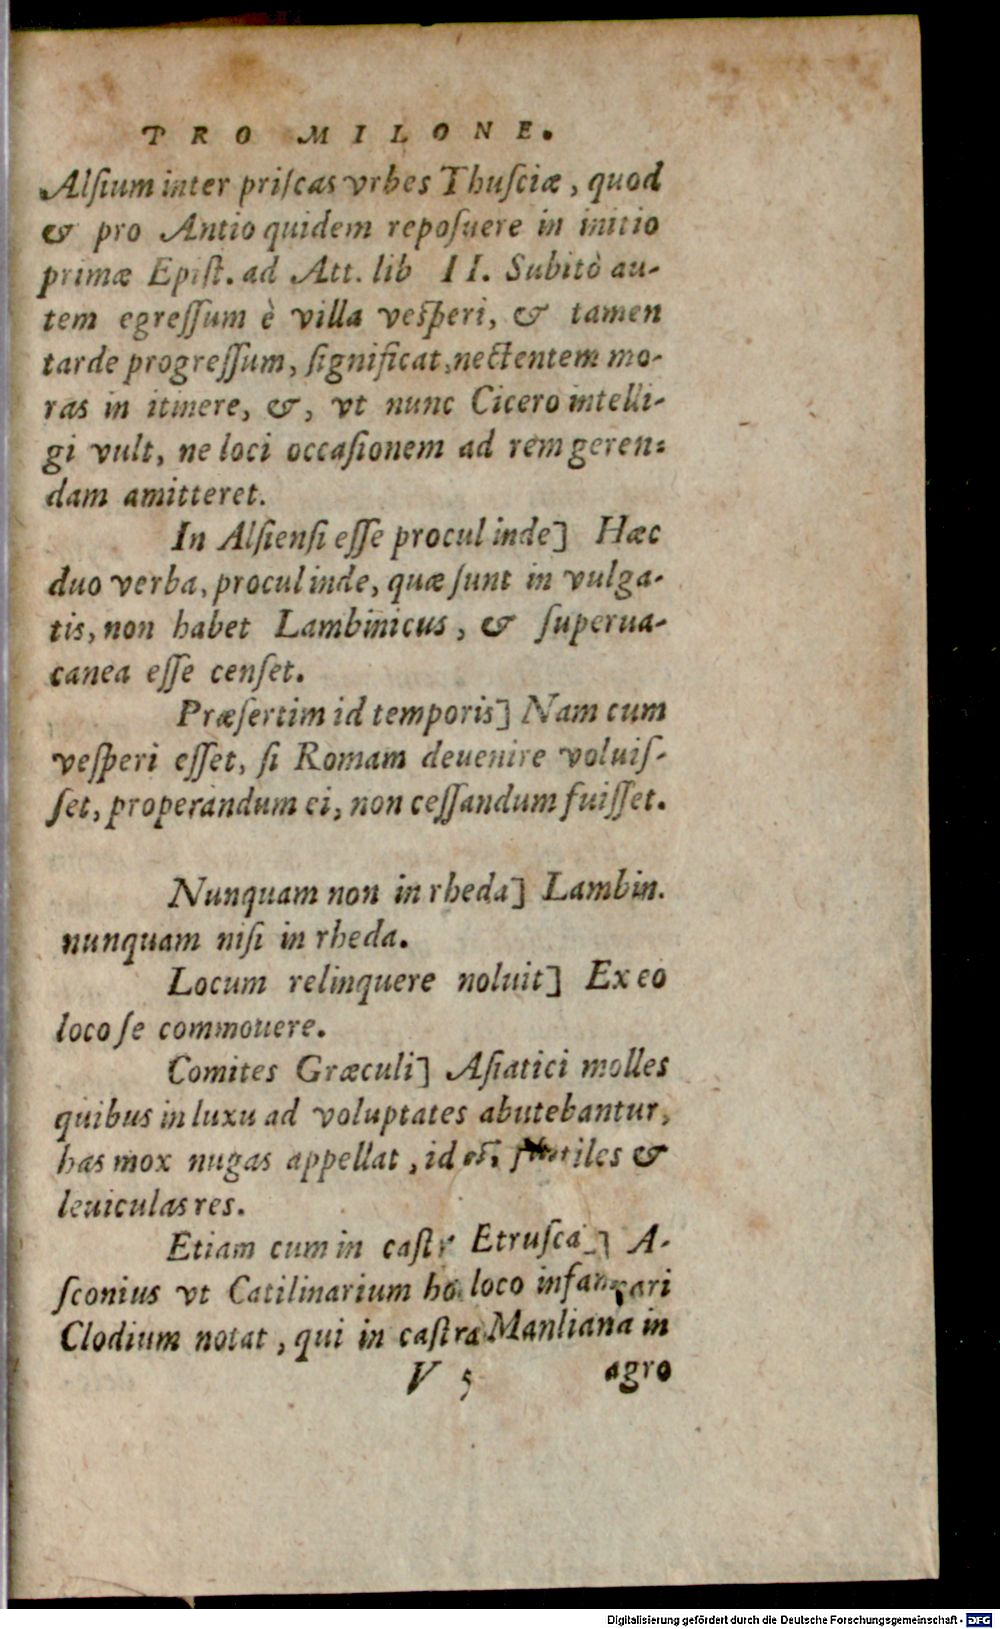 PRO MILONE.
Alſium inter priſcas vrbes Thuſciæ, quod
& pro Antio quidem repoſuere in initio
primæ Epiſt. ad Att. lib II. Subitò au-
tem egreſſum è villa veſperi, & tamen
tarde progreſſum, ſignificat, nectentem mo-
ras in itinere, &, vt nunc Cicero intelli-
gi vult, ne loci occaſionem ad rem geren-
dam amitteret.
In Alſienſi eſſe procul inde] Hæc
duo verba, procul inde, quæ ſunt in vulga-
tis, non habet Lambinicus, & ſuperua-
canea eſſe cenſet.
Præſertim id temporis] Nam cum
veſperi eſſet, ſi Romam deuenire voluiſ-
ſet, properandum ei, non ceſſandum fuiſſet.
Nunquam non in rheda] Lambin.
nunquam niſi in rheda.
Locum relinquere noluit] Ex eo
loco ſe commouere.
Comites Græculi] Aſiatici molles
quibus in luxu ad voluptates abutebantur,
has mox nugas appellat, id eſt & 
leuiculas res.
Etiam cum in caſtr Etruſca] A-
ſconius vt Catilinarium loco
Clodium notat, qui in caſtra Manliana in
V 5 agro
Digitalisierung gefördert durch die Deutsche Forschungsgemeinschaft - DFG